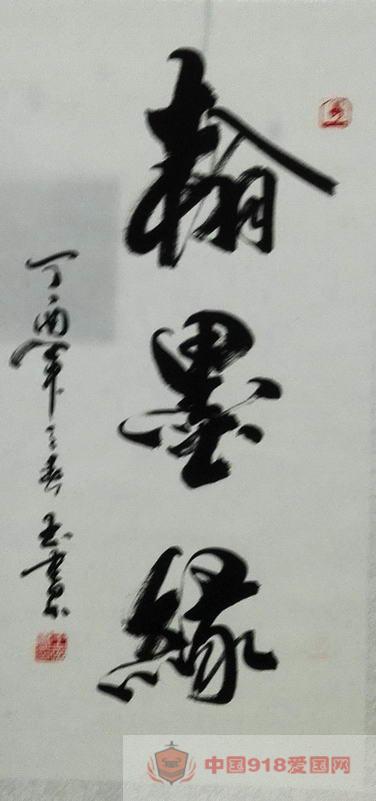 翰墨缘
丁酉年之春
中国918爱国网